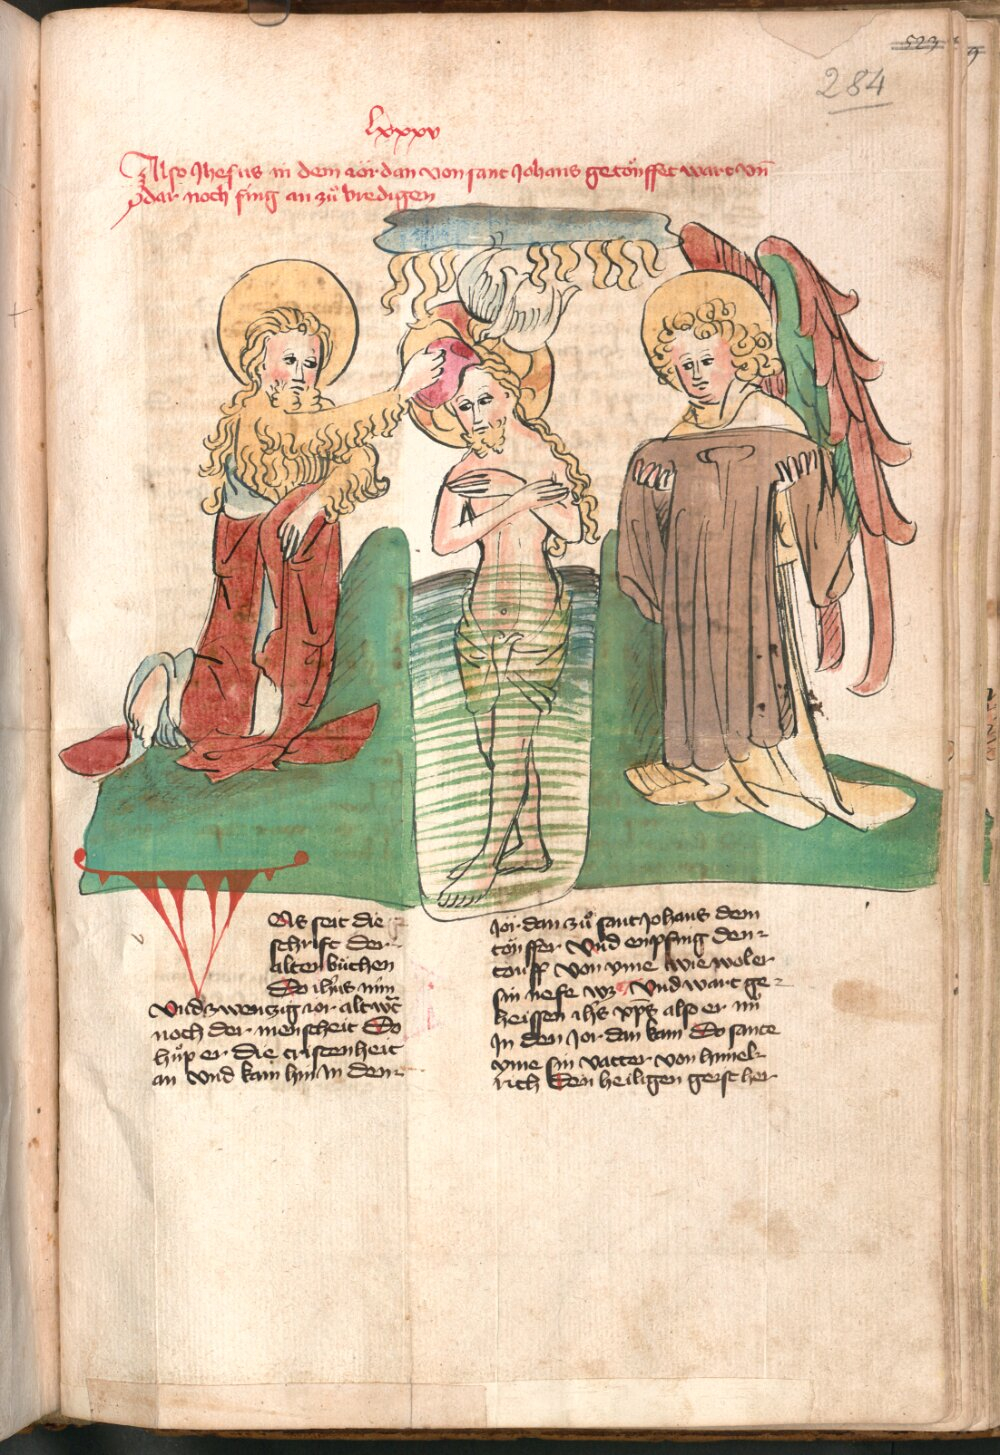 523
284
lxxxv
Also Jhesus in dem Jordan von sant Johans getöuffet wart vn̄
dar noch fing an zů bredigen
Os seit die
schrift der
alten bůchen
Do ih̄us nún
vnd zwenczig jor alt wc̄
noch der menscheit Do
hůp er die cristenheit
an vnd kam hin in den
Jordan zů sant Johans dem
töuffer vnd enpfing den
touff von yme wie woler
sin nefe wz vnd wart ge-
heissen ih̄s xp̄s also er nū
In den Jordan kam Do sante
yme sin vatter von himel-
rich Den heiligen geist her